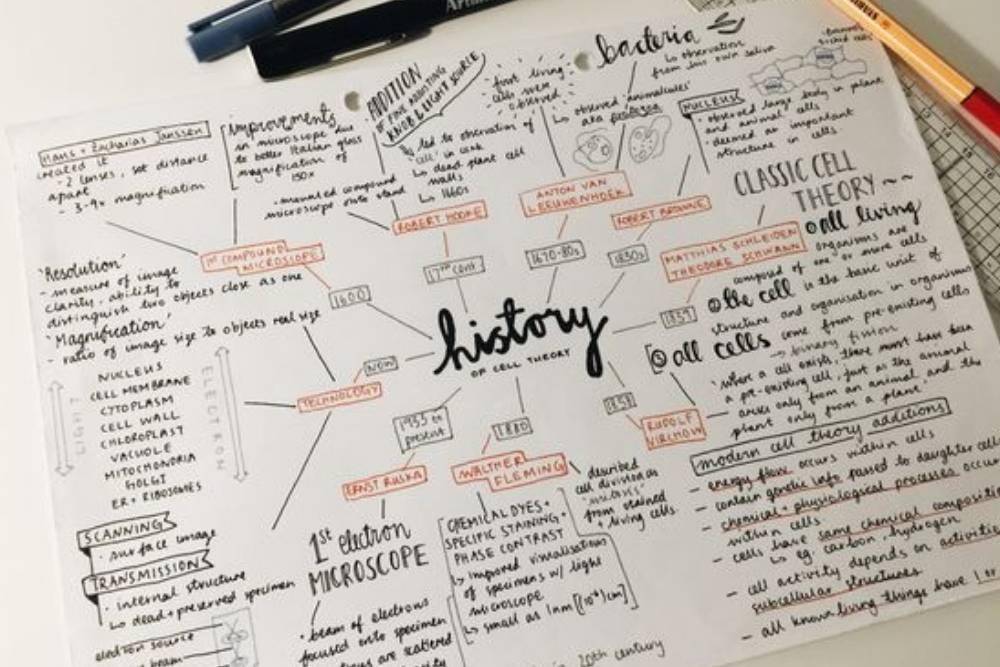 Hans + Zacharias Janssen
created it
- 2 lenses, set distance
apart
- 3-9x magnification
improvements
on microscope due
to better Italian glass
magnification of
150x
ADDITION
OF FINE ADJUSTING
KNOB & LIGHT SOURCE
this led to observation of
'cell' in cork
↳ dead plant cell
walls
↳ 1660s
- mounted compound
microscope onto stand
first living
cells were
observed
bacteria
↳ observation
from his own saliva
↳ observed 'animalcules'
aka protozoa
NUCLEUS
• observed large body in plant
and animal cells
• deemed as important
structure in
cells
1st COMPOUND
MICROSCOPE
1600
ROBERT HOOKE
17th cent.
ANTON VAN
LEEUWENHOEK
1670-80s
ROBERT BROWNE
1830s
MATTHIAS SCHLEIDEN
THEODORE SCHWANN
1839
CLASSIC CELL
THEORY ~~
① all living
organisms are
composed of one or more cells
② the cell is the basic unit of
structure and organisation in organisms
③ all cells come from pre-existing cells
→ binary fission
"where a cell exists, there must have been
a pre-existing cell, just as the animal
arises only from an animal and the
plant only from a plant"
1858
RUDOLF
VIRCHOW
history
OF CELL THEORY
'Resolution'
- measure of image
clarity, ability to
distinguish two objects close as one
'Magnification'
- ratio of image size to objects real size
NOW
TECHNOLOGY
LIGHT
ELECTRON
NUCLEUS
CELL MEMBRANE
CYTOPLASM
CELL WALL
CHLOROPLAST
VACUOLE
MITOCHONDRIA
GOLGI
ER + RIBOSOMES
SCANNING
• surface image
TRANSMISSION
• internal structure
↳ dead + preserved specimen
electron source
beam
1933 on
present
ERNST RUSKA
1st electron
MICROSCOPE
• beam of electrons
focused onto specimen
are scattered
1880
WALTHER
FLEMING
CHEMICAL DYES +
SPECIFIC STAINING +
PHASE CONTRAST
↳ improved visualisations
of specimens w/ light
microscope
↳ small as 1nm
described
cell division as
'mitosis'
from stained
+ living cells
in 20th century
modern cell theory additions
- energy flow occurs within cells
- contain genetic info passed to daughter cell
- chemical + physiological processes occur
within cells
- cells have same chemical composition
↳ eg. carbon, hydrogen
- cell activity depends on activities
subcellular structures
- all known living things have 1 or